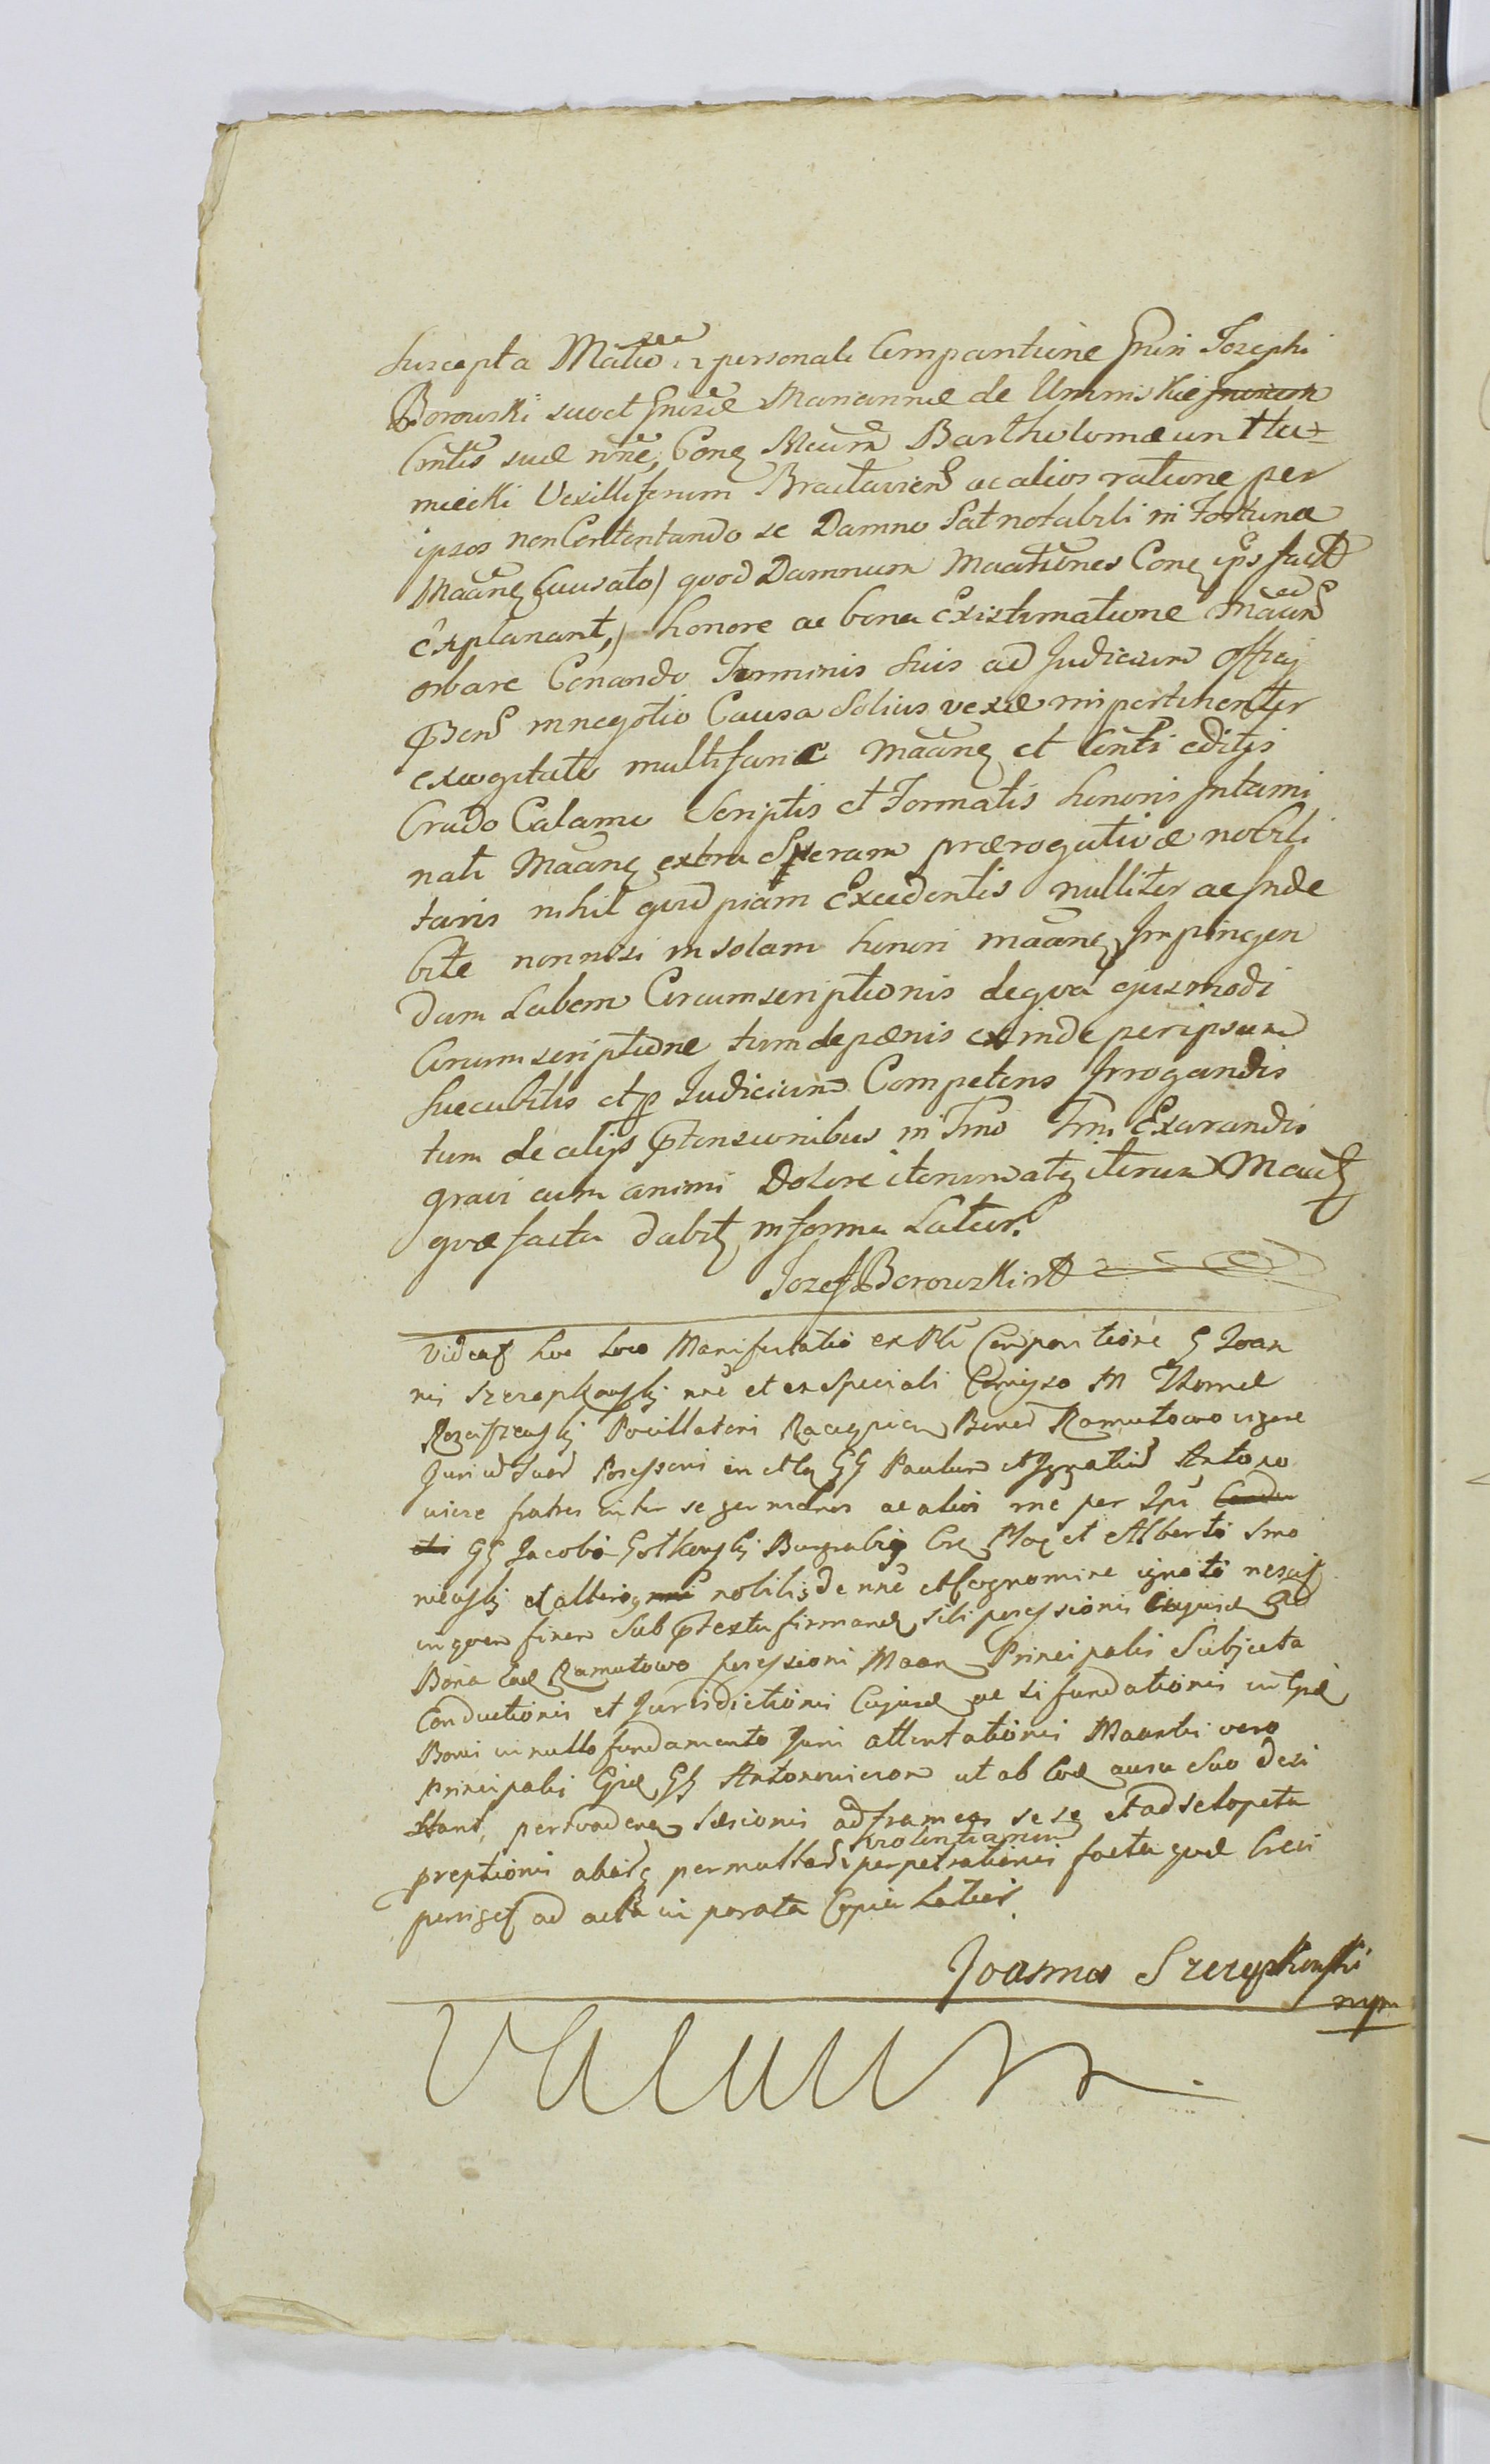 Suscepta Matio personali Comparitione Gnsi Josephi
Borowski suo et Gnsæ Mariannæ de Uminskie
Contis suæ nne, Conq Mcum Bartholomæum Hu=
miecki Vexilliferum Bractaviens ac alios ratione per
ipsos non Contentando se Damno Sat notabili in Fortuna
Maanq Causato) quod Damnum Maationes Conq ips fact
explanant,) honore ac bona Existimatione Maan
orbare Conando Terminis suis ad Judicium Officij
in negotio Causa Solius vexæ impertinenter
excogitato multifariæ Maanq et Conti editis
Crudo Calamo Scriptis et Formatis honoris Intami
nati Maanq extra Speram prærogativæ nobili
taris nihil quidpiam Excedentis nulliter ac Inde
bite nonnisi in solam honori maanq Impingen
dam Labem Circumscriptionis de qua ejusmodi
Circumscriptione tum de pænis exinde per ipsum
Succubitis et p Judicium Competens Irrogandis
tum de alijs ptensionibus in Tmo Trm Exarandis
gravi cum animi Dolore iterum atq iterum Maat
quæ facta dabit in forma Latior.
Jozef Borowski
Videat hoc loco Manifestatio ex Comparitione G Joan
nis Szczepkowski nne et ex speciali Comisso M Thomæ
Pocillatori Bonor Ramutowo
Juri ad Possessoris in et ad GG Paulum et Ignatium Antono
vicze fratres inter se germanos ac alios per Ips
GG Jacobi Gotkowski Burgrabij et Alberti Smo
niewski et alterius nobilis de nne et cognomine ignoto nescit
in quem finem Sub ptextu firmandæ sibi possessionis Cujusd ad
Bona Ead Ramutowo possessioni Maan Principalis Subjecta
Conductionis et Jurisdictionis Cujusd ac si fundationis in
Bonis in nullo fundamento Juris attentationis Maanti vero
Principalis GG Antonowiczom ut ab Eod ausu Suo desi
stant, persvadena ad frameas sese et ad sclopeta
preptionis aliasq permultas violentiarum perpetrationis facta quæ
perriget ad acta in parata Copia Latior.
Joannes Szczepkowski
mpp
Vacuum.